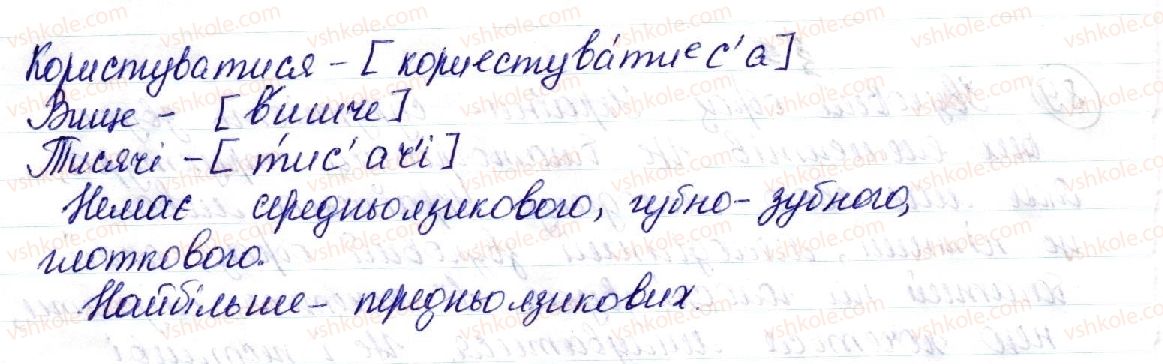 Користуватися – [користува́тиес'а]
Вище – [ви́шче]
Тисячі – [ти́с'ач'і]
Немає середньоязикового, губно-зубного,
глоткового.
Найбільше – передньоязикових.